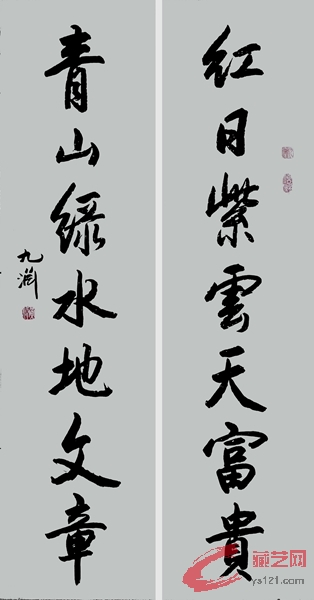 红日紫雲天富貴
青山绿水地文章
九渊
藏艺网
ys121.com